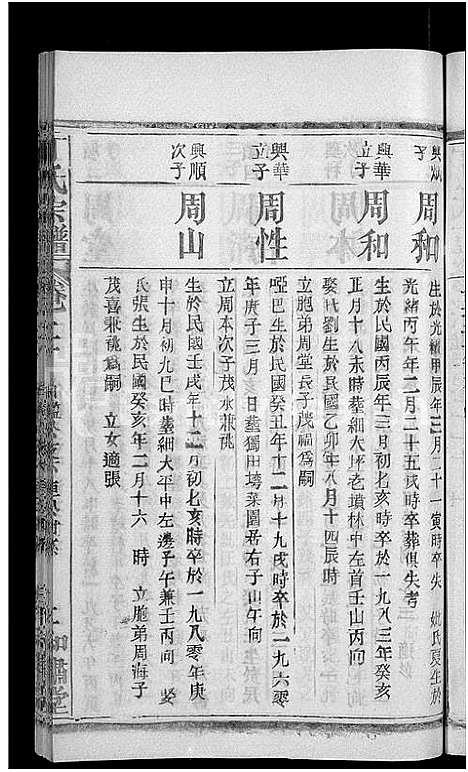 興順
子
周和
生於光緒甲辰年三月二十一寅時卒失 妣氏夏生於
光緒丙午年二月二十五戌時卒葬俱失考
興華
立子
周和
生於民國丙辰年三月初七亥時卒於一九八三年癸亥
正月十八未時葬細大坪老墳林中左首壬山丙向
娶氏劉生於民國乙卯年八月十四辰時
立胞弟周堂長子茂福爲嗣
興華
立子
周性
啞巴生於民國癸丑年十二月十九戌時卒於一九六零
年庚子三月亥日葬獨田塝菜園嵒右子山午向
立周本次子茂永兼祧
興順
次子
周山
生於民國壬戌年十二月初七亥時卒於一九八零年庚
申十月初九巳時葬細大平中左邊子午兼壬丙向 娶
氏張生於民國癸亥年二月十六 時 立胞弟周海子
茂喜兼祧爲嗣 立女適張
丁氏宗譜